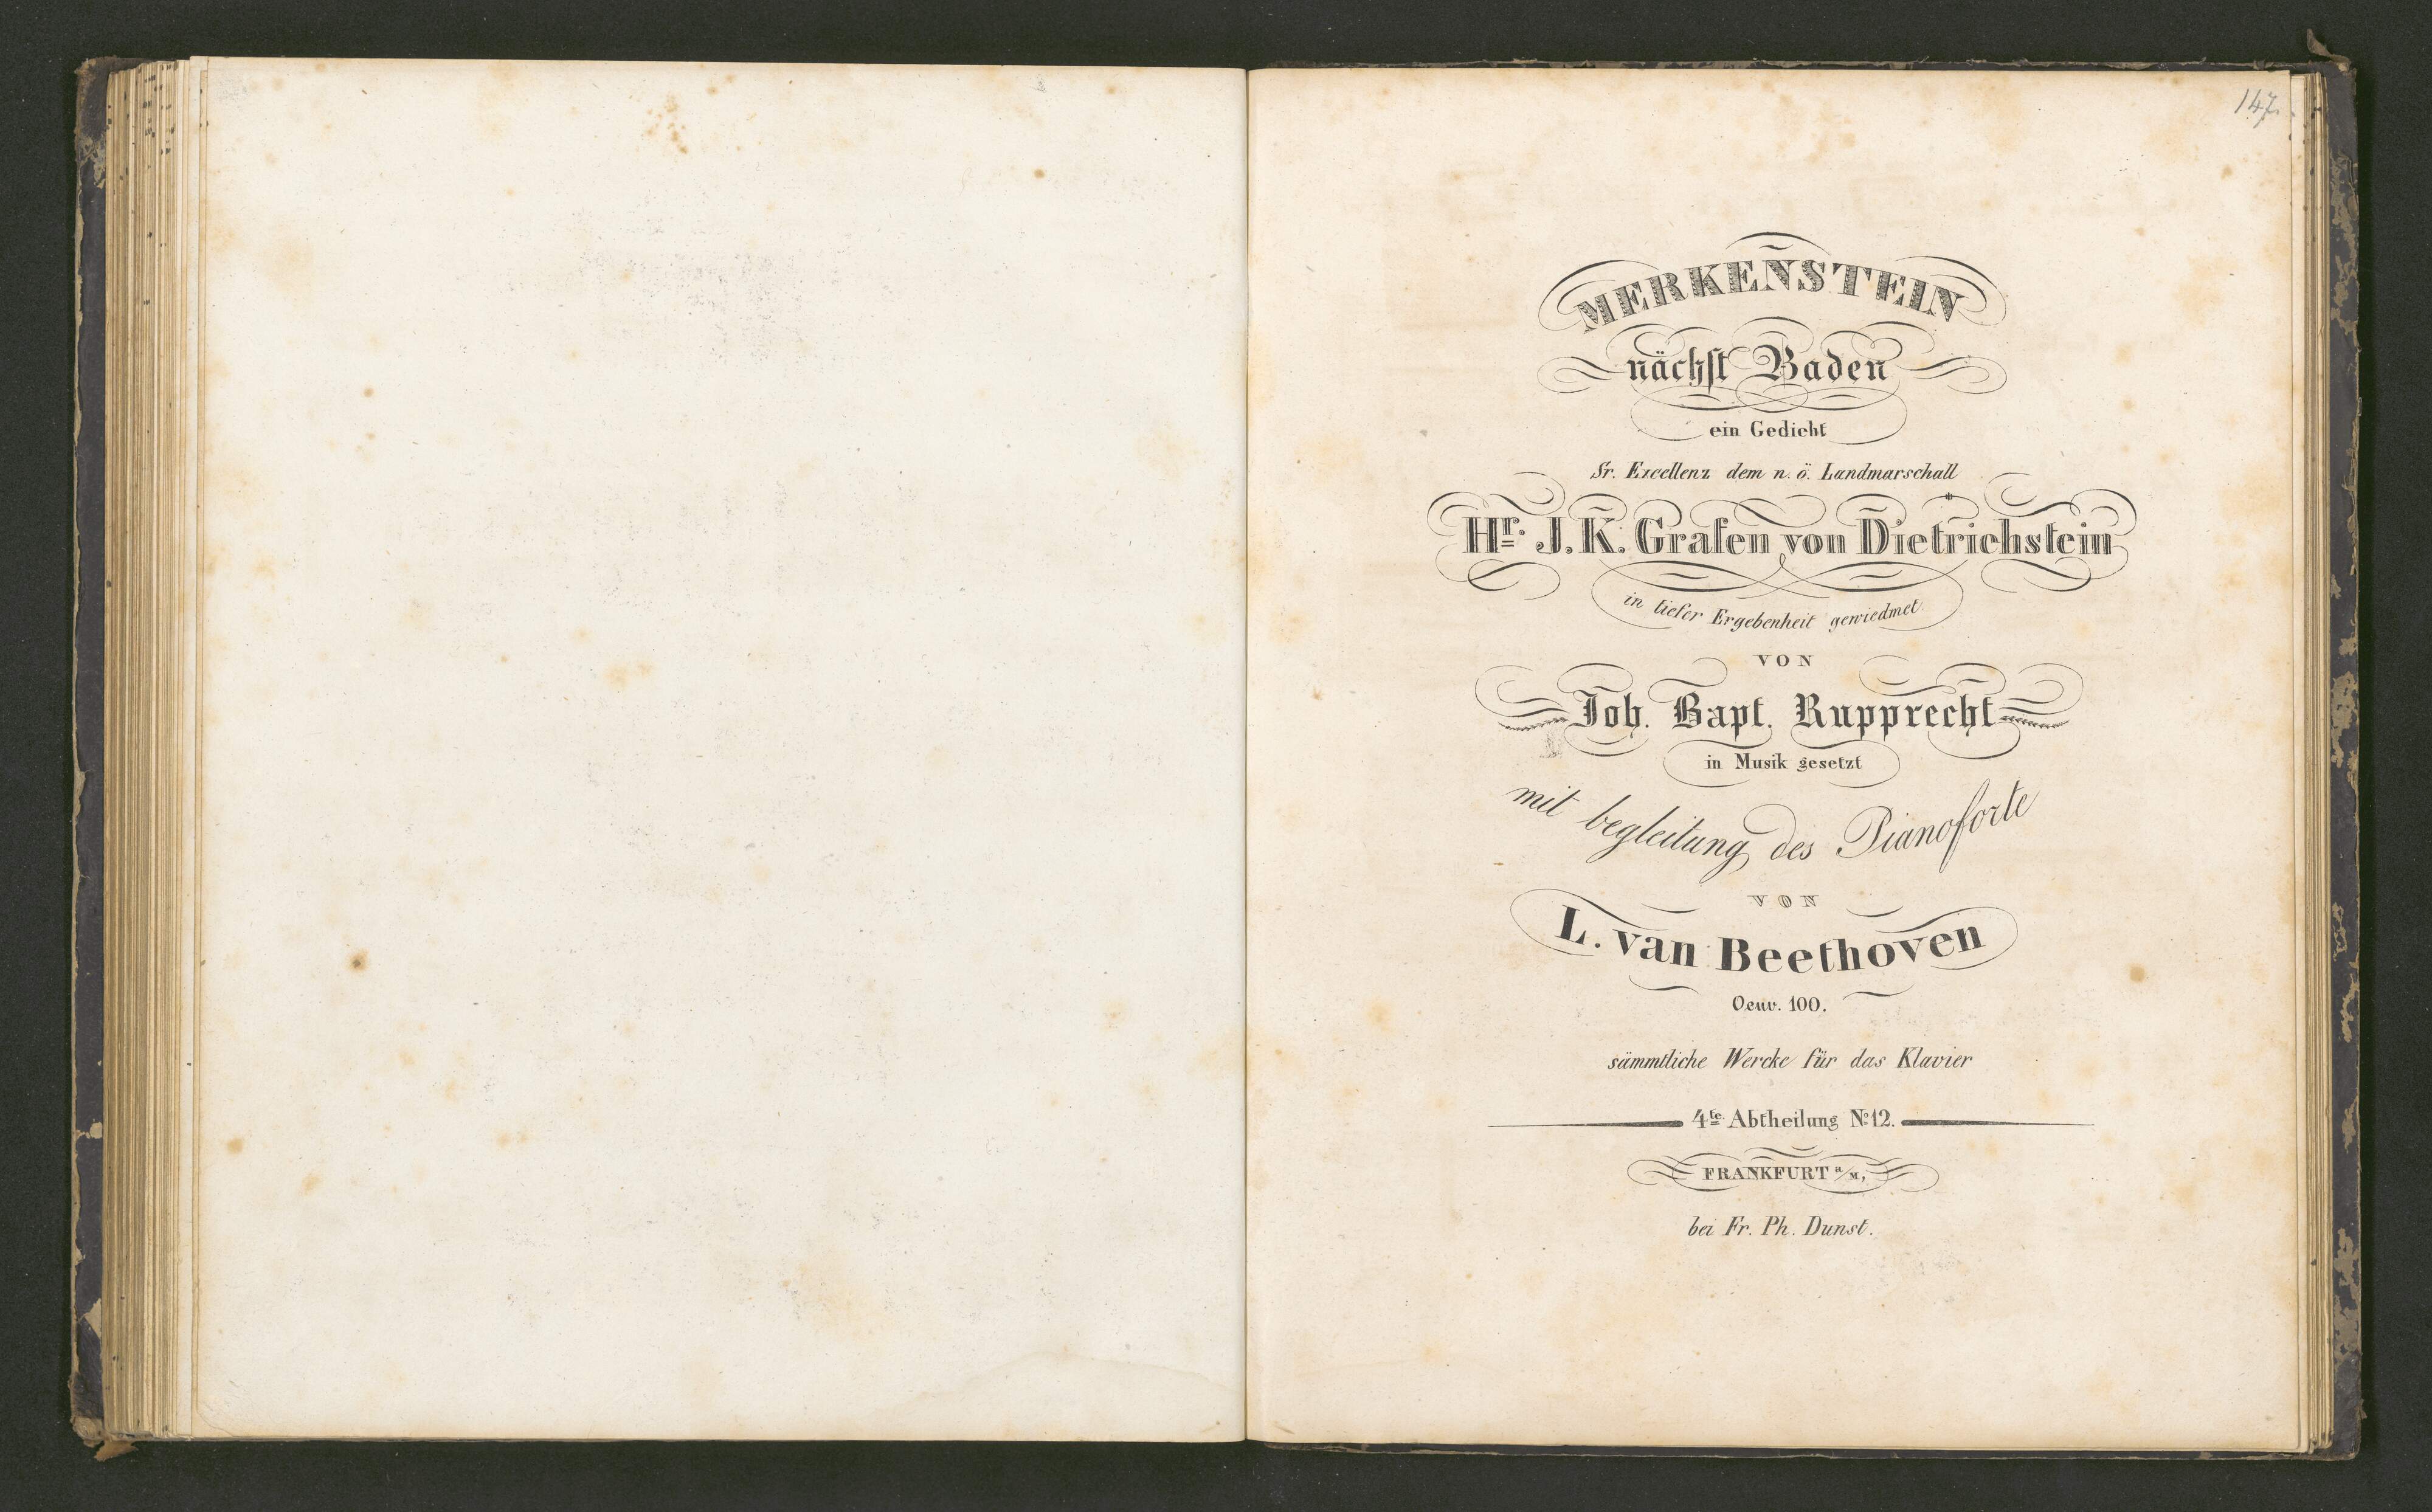 147.
MERKENSTEIN
nächſt Baden
ein Gedicht
Sr. Excellenz dem n. ö. Landmarschall
Hr. J. K. Grafen von Dietrichstein
in tiefer Ergebenheit gewiedmet
VON
Joh. Bapt. Rupprecht
in Musik gesetzt
mit begleitung des Pianoforte
VON
L. van Beethoven
Oeuv. 100.
sämmtliche Wercke für das Klavier
4te Abtheilung No 12.
FRANKFURT a/M,
bei Fr. Ph. Dunst.